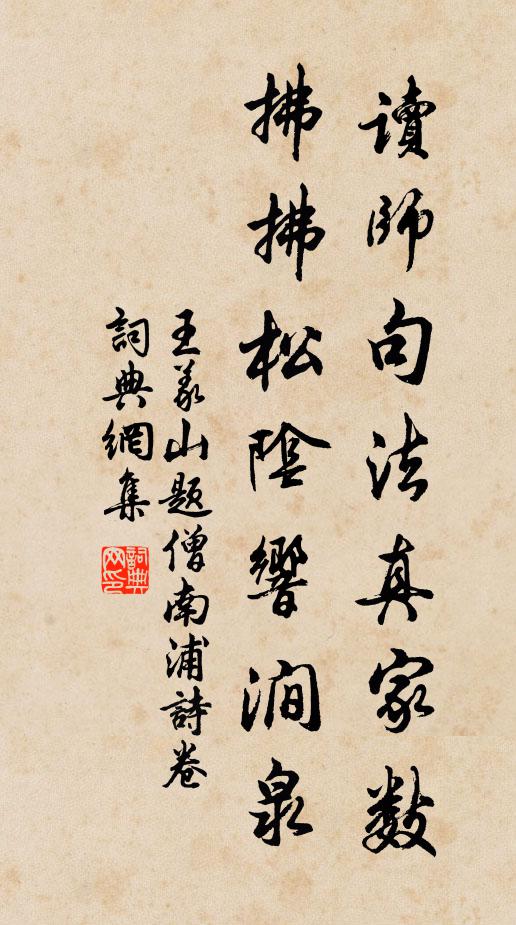 讀師句法真家數
拂拂松陰響澗泉
王義山題僧南浦詩卷
詞典網集
詞典
网印